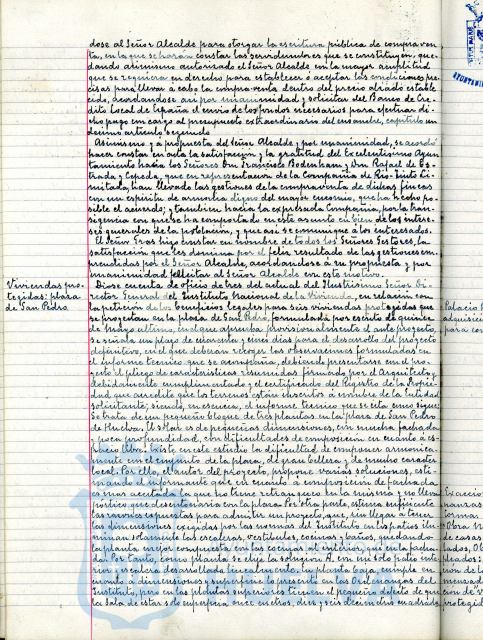 dose al Señor Alcalde para otorgar la escritura pública de compraven-
ta, en la que se harán constar las servidumbres que se constituyen, que-
dando asimismo autorizado el Señor Alcalde en la mayor amplitud
que se requiera en derecho para establecer ó aceptar las condiciones pre-
cisas para llevar a cabo la compraventa dentro del precio alzado estable-
cido, acordandose asi por unanimidad y solicitar del Banco de Cré-
dito Local de España el envío de los fondos necesarios para efectuar di-
cho pago con cargo al presupuesto extraordinario del ensanche, capítulo un-
décimo artículo segundo
Asimismo y a propuesta del Señor Alcalde, y por unanimidad, se acordó
hacer constar en acta la satisfacción y la gratitud del Excelentísimo Ayun-
tamiento hacia los Señores Don Francisco Bedenham y Don Rafael de Es-
trada y Cepeda, que en representación de la Compañía de Rio-Tinto Li-
mitada, han llevado las gestiones de la compraventa de dichas fincas
con un espíritu de armonía digno del mayor encomio, que ha hecho po-
sible el acuerdo; y tambien hacia la expresada Compañía, por la tran-
sigencia con que se ha comportado en este asunto en bien de los intere-
ses generales de la población, y que asi se comunique a los interesados.
El Señor Gras hizo constar en nombre de todos los Señores Gestores, la
satisfacción que les domina por el feliz resultado de las gestiones en-
comendadas por el Señor Alcalde, acordandose a su propuesta y por
unanimidad felicitar al Señor Alcalde con este motivo.
Viviendas pro-
tegidas: plaza
de San Pedro
Diose cuenta de oficio de tres del actual del Ilustrísimo Señor Di-
rector General del Instituto Nacional de la Vivienda, en relación con
la petición de los beneficios legales para seis viviendas protegidas que
se proyectan en la plaza de San Pedro, formulada por escrito de quince
de mayo último, en el que aprueba provisionalmente el anteproyecto,
se señala un plazo de cuarenta y cinco días para el desarrollo del proyecto
definitivo, en el que deberán recoger las observaciones formuladas en
el informe técnico que se acompaña, debiendo presentarse en el pro-
yecto el pliego de características resumidas firmado por el Arquitecto y
debidamente cumplimentado y el certificado del Registro de la Propie-
dad que acredite que los terrenos están inscritos á nombre de la Entidad
solicitante; siendo, en esencia, el informe técnico que se cita como sigue:
Se trata de un pequeño bloque de tres plantas en la plaza de San Pedro
de Huelva. El solar es de pequeñas dimensiones, con mucha fachada
y poca profundidad, con dificultades de composición en cuanto a es-
pacio libre. Existe en este estudio la dificultad de componer armonica-
mente con el conjunto de la plaza, de gran belleza y de mucho caracter
local. Por ello, el autor del proyecto, propone varias soluciones, esti-
mando el informante que en cuanto á composición de fachada
es mas acertada la que no tiene retranqueo en la misma y no lleva
pórtico que desentonaría con la plaza. Por otra parte, estima suficientes
las razones expuestas para admitir un proyecto que, sin llegar a tener
las dimensiones exigidas por las normas del Instituto en los patios ilu-
minan solamente las escaleras, vestíbulos, cocinas y baños, quedando
la planta mejor compuesta con las cocinas al exterior, que en la facha-
da. Por tanto, como planta se elige la solución A, con un solo patio inte-
rior y escalera desarrollada totalmente. La planta baja, cumple en
cuanto a dimensiones y superficie lo prescrito en las Ordenanzas del
Instituto, pero en las plantas superiores tienen el pequeño defecto de que
la sala de estar solo superficia once enteros, diez y seis décimetros cuadrados,